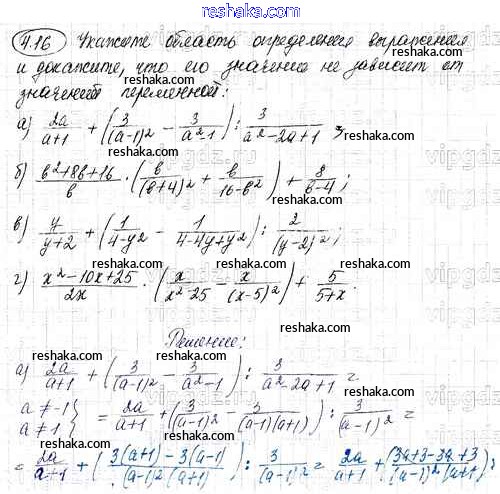 reshaka.com
4.16 Укажите область определения выражения
и докажите, что его значение не зависит от
значений переменной:
а) 2a/(a+1) + (3/(a-1)² - 3/(a²-1)) : 3/(a²-2a+1);
reshaka.com reshaka.com
б) (b²+8b+16)/b · (b/(b+4)² + b/(16-b²)) + 8/(b-4);
reshaka.com
в) y/(y+2) + (1/(4-y²) - 1/(4-4y+y²)) : 2/(y-2)²;
reshaka.com reshaka.com
г) (x²-10x+25)/2x · (x/(x²-25) - x/(x-5)²) + 5/(5+x).
reshaka.com
Решение:
reshaka.com reshaka.com
а) 2a/(a+1) + (3/(a-1)² - 3/(a²-1)) : 3/(a²-2a+1) =
reshaka.com
a ≠ -1
a ≠ 1 } = 2a/(a+1) + (3/(a-1)² - 3/((a-1)(a+1))) : 3/(a-1)² =
reshaka.com reshaka.com
= 2a/(a+1) + (3(a+1)-3(a-1))/((a-1)²(a+1)) : 3/(a-1)² = 2a/(a+1) + (3a+3-3a+3)/((a-1)²(a+1)) ·
reshaka.com